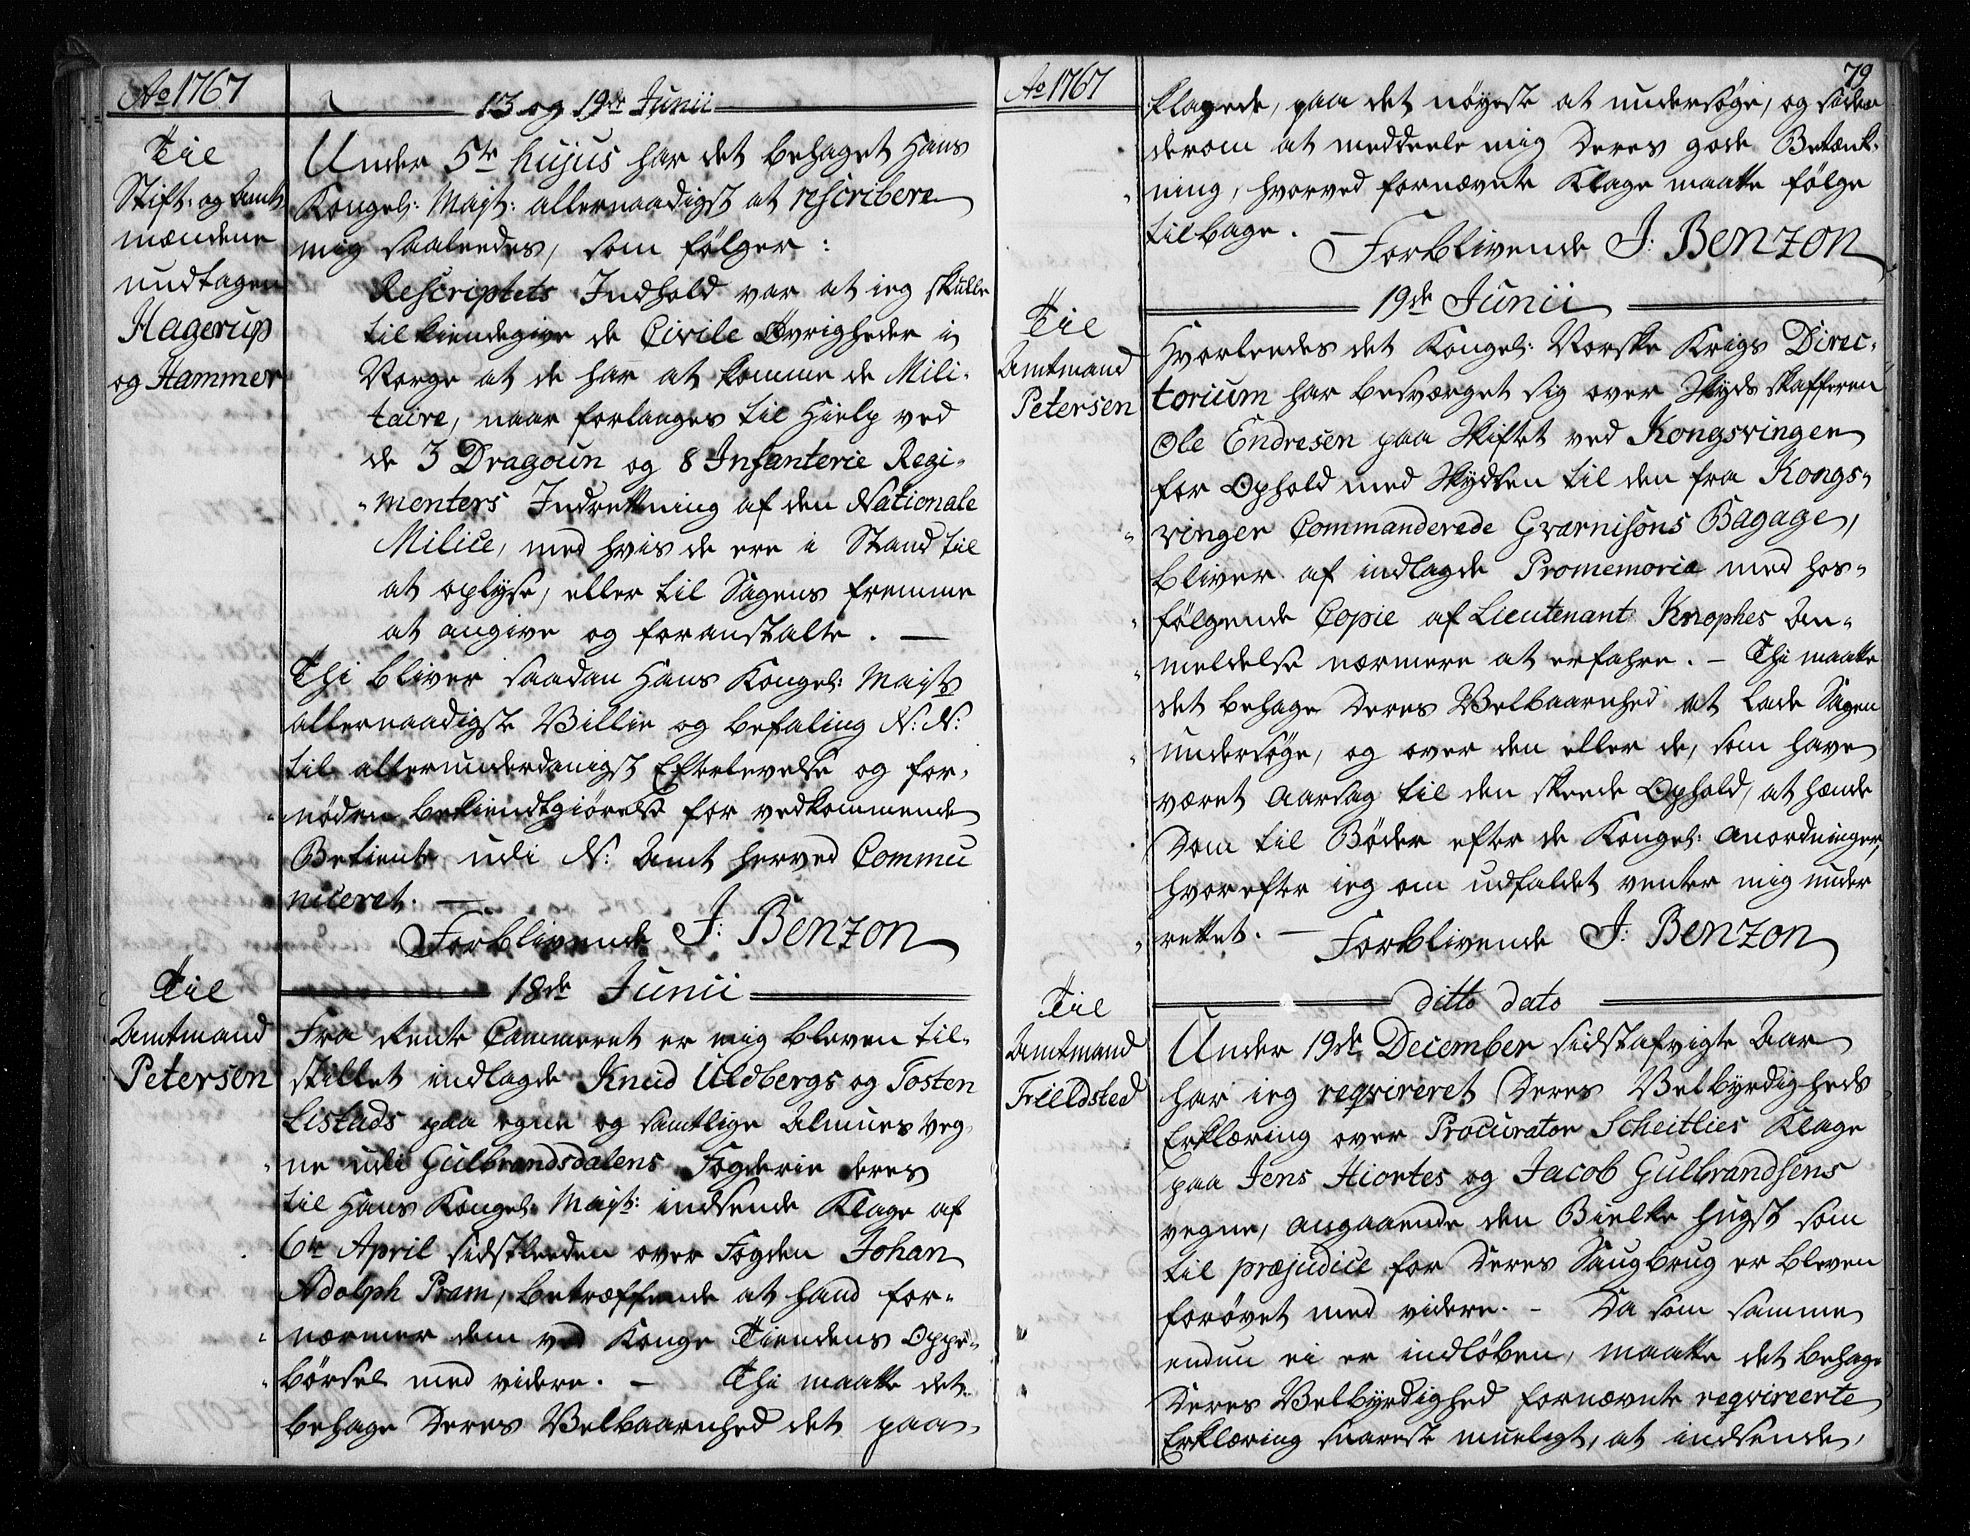 Ao 1767
13 og 19de Junii
Til
Stift- og Amt-
mændene
undtagen
Hagerup
og Hammer
Under 5te hujus har det behaget Hans
Kongel: Mayt: allernaadigst at rescribere
mig saaledes, som følger:
Rescriptets Indhold var at ieg skulle
tilkiendegive de Civile Øvrigheder i
Norge at de har at komme de Mili-
taire, naar forlanges til Hielp ved
de 3 Dragoun og 8 Infanterie Regi-
menters Indrettning af den Nationale
Milice, med hvis de ere i Stand til
at oplyse, eller til Sagens fremme
at angive og foranstalte. —
Thi bliver saadan Hans Kongel: Mayts
allernaadigste Villie og befaling N: N:
til allerunderdanigst Efterlevelse og for-
nøden bekiendtgiørelse for vedkommende
Betiente udi N: Amt herved Commu
niceret. —
Forblivende J: Benzon
18de Junii
Til
Amtmand
Petersen
Fra Rente Cammeret er mig bleven til-
stillet indlagde Knud Uldbergs og Tosten
Listads paa egne og samtlige Almues veg-
ne udi Gulbrandsdalens Fogderie deres
til Hans Kongel: Mayt: indsendte Klage af
6te April sidstleeden over Fogden Johan
Adolph Pram, betræffende at hand for-
nærmer dem ved Konge Tiendens Oppe-
börsel med videre. — Thi maatte det
behage Deres Velbaarnhed det paa-
Ao 1767
79
klagede, paa det nøyeste at undersøge, og siden
derom at meddeele mig Deres gode Betænk-
ning, hvorved fornævnte Klage maatte følge
tilbage. — Forblivende J: Benzon
19de Junii
Til
Amtmand
Petersen
Hvorledes det Kongel: Norske Krigs Direc-
torium har besværget sig over Skydsskafferen
Ole Endresen paa Skiftet ved Kongsvinger
for Ophold med Skydsen til den fra Kongs-
vinger Commanderede Gvarnisons Bagage,
bliver af indlagde Promemoria med hos-
følgende Copie af Lieutenant Knophes An-
meldelse nærmere at erfahre. — Thi maatte
det behage Deres Velbaarnhed at lade Sagen
undersøge, og over den eller de, som have
været Aarsag til den skeede Ophold, at hænde
Dom til Bøder efter de Kongel: anordninger,
hvorefter ieg om udfaldet venter mig under
rettet. — Forblivende J: Benzon
ditto dato
Til
Amtmand
Frieldsted
Under 19de December sidstafvigte Aar
har ieg reqvireret Deres Velbyrdigheds
Erklæring over Procurator Scheitlies Klage
paa Jens Hiortes og Jacob Gulbrandsens
vegne, angaaende den Bielke hugst som
til præjudice for Deres Saugbrug er bleven
forøvet med videre. — Da som samme
endnu ei er indløben, maatte det behage
Deres Velbyrdighed fornævnte reqvireerte
Erklæring snareste mueligt, at indsende,